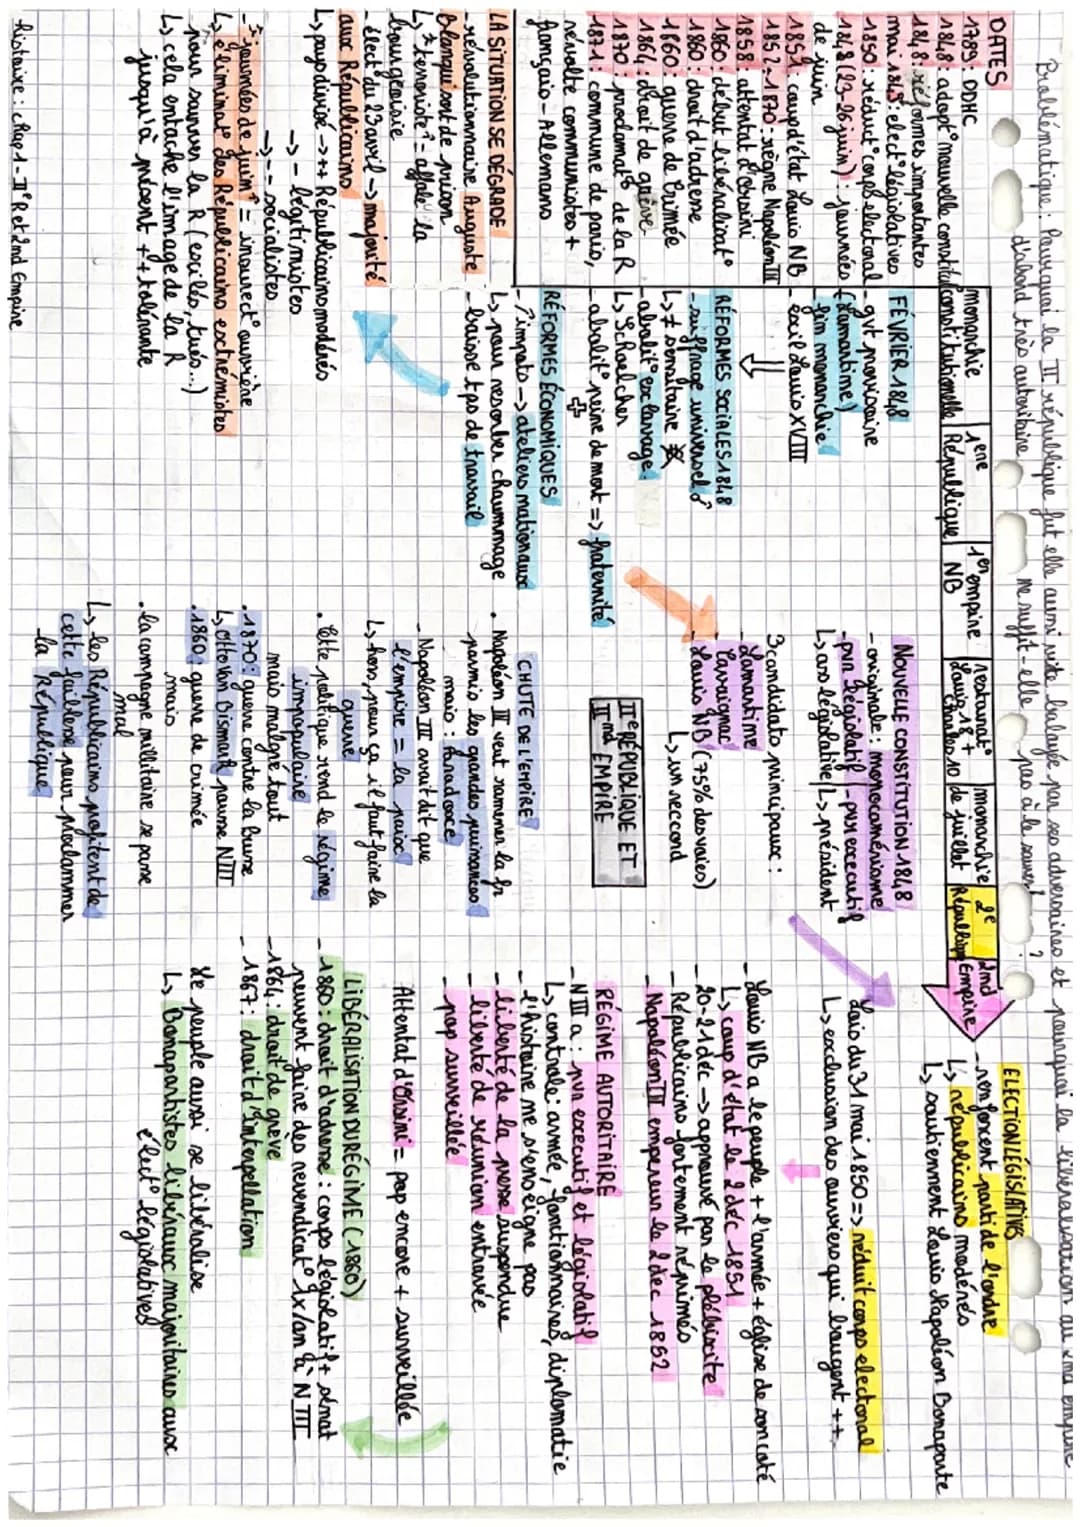 Problématique : Pourquoi la II république fut elle aussi vite balayée par ses adversaires et pourquoi la libéralisation du 2nd empire
d'abord très autoritaire ne suffit-elle pas à le sauver ?
DATES
1789 : DDHC
1848 : adopt° nouvelle constitut°
1848 : réformes importantes
mai 1848 : elect° législatives
1850 : réduct° corps électoral
1848 (23-26 juin) : journées
de juin
1851 : coup d'état Louis NB
1852-1870 : règne Napoléon III
1858 : attentat d'Orsini
1860 : début libéralisat°
1860 : droit d'adresse
1860 : guerre de Crimée
1864 : droit de grève
1870 : proclamat° de la R
1871 : commune de paris,
révolte communistes +
français-Allemans
monarchie
constitutionnelle
1ère
République
1er empire
NB
restaurat°
Louis 18 +
Charles 10
monarchie
de juillet
2e
République
2nd
Empire
FÉVRIER 1848
- gvt provisoire
(Lamartine)
- fin monarchie
- exil Louis XVIII
RÉFORMES SOCIALES 1848
- suffrage universel ♂
↳ ≠ censitaire
- abolit° esclavage
↳ Schoelcher
- abolit° peine de mort => fraternité
+
RÉFORMES ÉCONOMIQUES
- ↗ impots → ateliers nationaux
↳ pour resorber chaummage
- baisse tps de travail
LA SITUATION SE DÉGRADE
- révolutionnaire Auguste
Blanqui sort de prison
↳ "terroriste" = affole la
bourgeoisie
- élect° du 23 avril → majorité
aux Républicains
↳ pays divisé → ++ Républicains modérés
→ - légitimistes
→ -- socialistes
- "journées de juin" = insurrect° ouvrière
↳ éliminat° des Républicains extrémistes
pour sauver la R (exilés, tués...)
↳ cela entache l'image de la R
jusqu'à présent ++ tolérante
NOUVELLE CONSTITUTION 1848
- originale : monocamérisme
- pvr législatif - pvr executif
↳ ass législative ↳ président
3 candidats principaux :
- Lamartine
- Cavaignac
- Louis NB (75% des voies)
↳ un reccord
IIe RÉPUBLIQUE ET
IInd EMPIRE
CHUTE DE L'EMPIRE
• Napoléon III veut ramener la fr
parmis les grandes puissances
mais : paradoxe
- Napoléon III avait dit que
l'empire = la paix
↳ hors, pour ça il faut faire la
guerre
• Cette politique rend le régime
impopulaire
mais malgré tout
• 1870 : guerre contre la Prusse
↳ Otto Von Bismark pousse N III
• 1860 : guerre de crimée
mais
• la campagne millitaire se passe
mal
↳ les Républicains profitent de
cette faiblesse pour proclammer
la République
ELECTION LÉGISLATIVES
- renforcent parti de l'ordre
↳ républicains modérés
↳ soutiennent Louis Napoléon Bonaparte
Lois du 31 mai 1850 => réduit corps électoral
↳ exclusion des ouvriers qui bougent ++
- Louis NB a le peuple + l'armée + église de son coté
↳ coup d'état le 2 déc 1851
- 20-21 déc → approuvé par le plébiscite
- Républicains fortement réprimés
- Napoléon III empereur le 2 déc 1852
RÉGIME AUTORITAIRE
- N III a : pvr executif et législatif
↳ controle : armée, fonctionnaires, diplomatie
- l'histoire ne s'enseigne pas
- liberté de la presse suspendue
- liberté de réunion entravée
- pop surveillée
Attentat d'Orsini = pop encore + surveillée
LIBÉRALISATION DU RÉGIME (1860)
- 1860 : droit d'adresse : corps législatif + sénat
peuvent faire des revendicat° 1x/an à N III
- 1864 : droit de grève
- 1867 : droit d'interpellation
Le peuple aussi se libéralise
↳ Bonapartistes libéraux majoritaires aux
élect° législatives
Histoire : chap 1 - IIe R et 2nd Empire